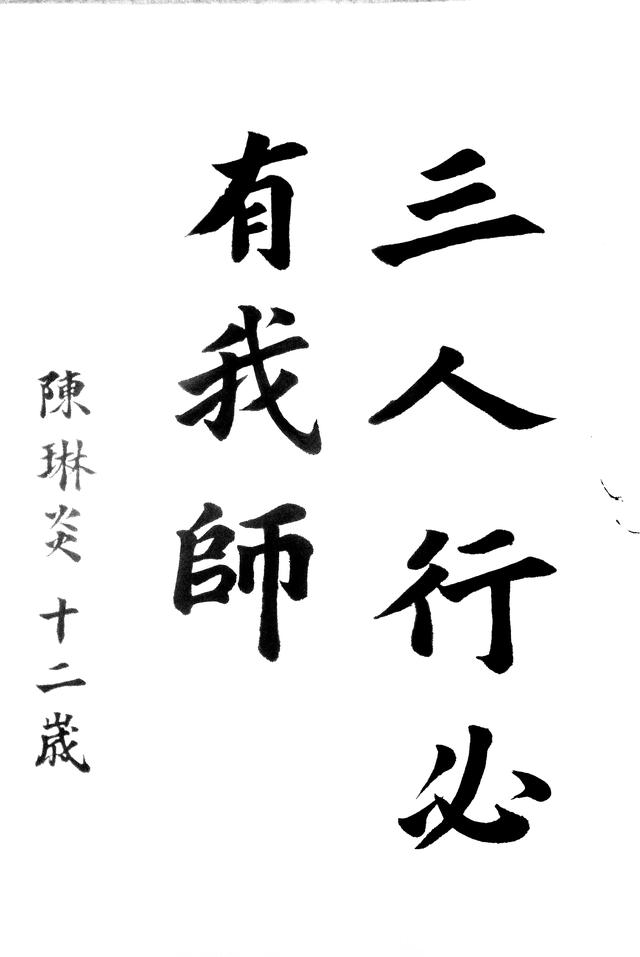 三人行必
有我師
陳琳炎 十二歲